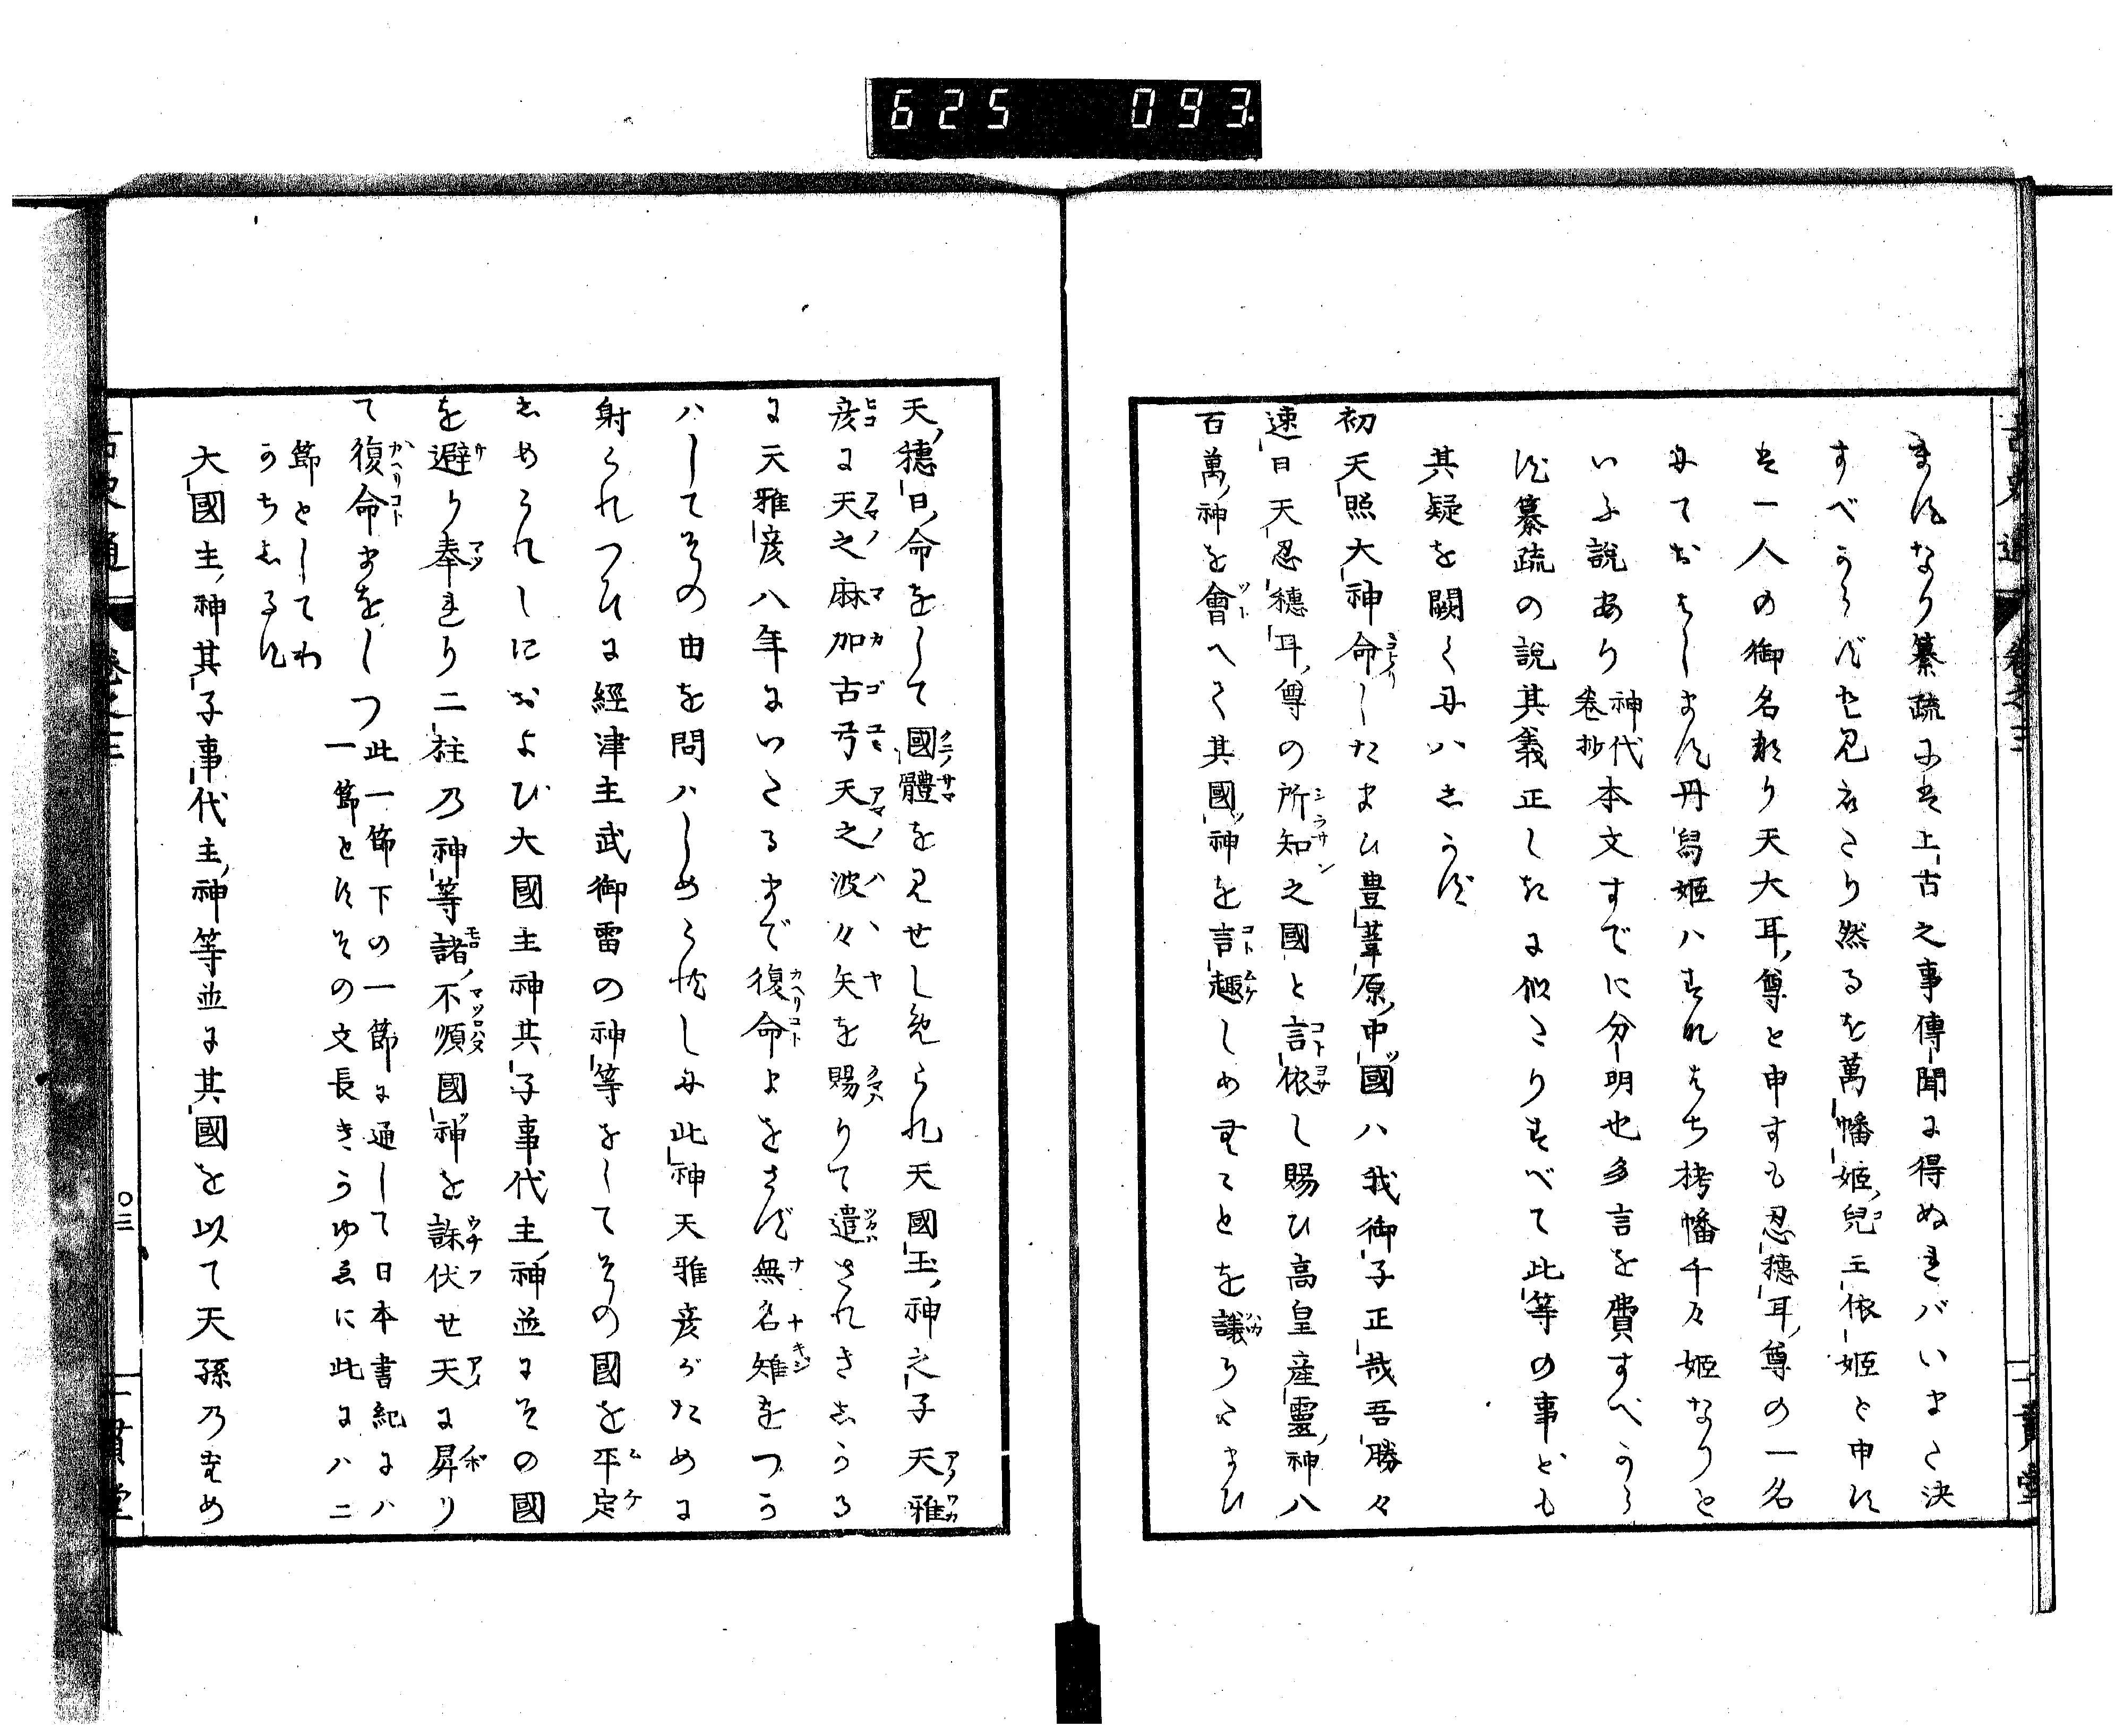 625 093
まはなり纂疏には上古之事傳聞に得ぬればいまた決
すべからずと見えたり然るを萬幡姫兒玉依姫と申は
是一人の御名なり天大耳尊と申すも忍穗耳尊の一名
にておはします丹舄姫ハすなはち栲幡千々姫なりと
いふ說あり神代卷抄本文すでに分明也多言を費すべから
ず纂疏の說其義正しきに似たりすべて此等の事ども
其疑を闕くにハしかず
初天照大神命したまひ豊葦原中國ハ我御子正哉吾勝々
速日天忍穗耳尊の所知之國と言依し賜ひ高皇産靈神八
百萬神を會へて其國神を言趣しめむことを議りたまひ
天穗日命をして國體を見せしめられ天國玉神之子天雅
彦に天之麻加古弓天之波々矢を賜りて遣されきしかる
に天雅彦八年にいたるまで復命まをさず無名雉をつか
ハしてその由を問ハしめられしに此神天雅彦がために
射られつひに經津主武御雷の神等をしてその國を平定
しめられしにおよび大國主神其子事代主神並にその國
を避り奉れり二柱乃神等諸不順國神を誅伏せ天に昇り
て復命まをしつ此一節下の一節に通して日本書紀にハ
一節とすその文長きかゆゑに此にハ二
節としてわ
かちしるす
大國主神其子事代主神等並に其國を以て天孫乃ため
古史通 卷之三
〇三